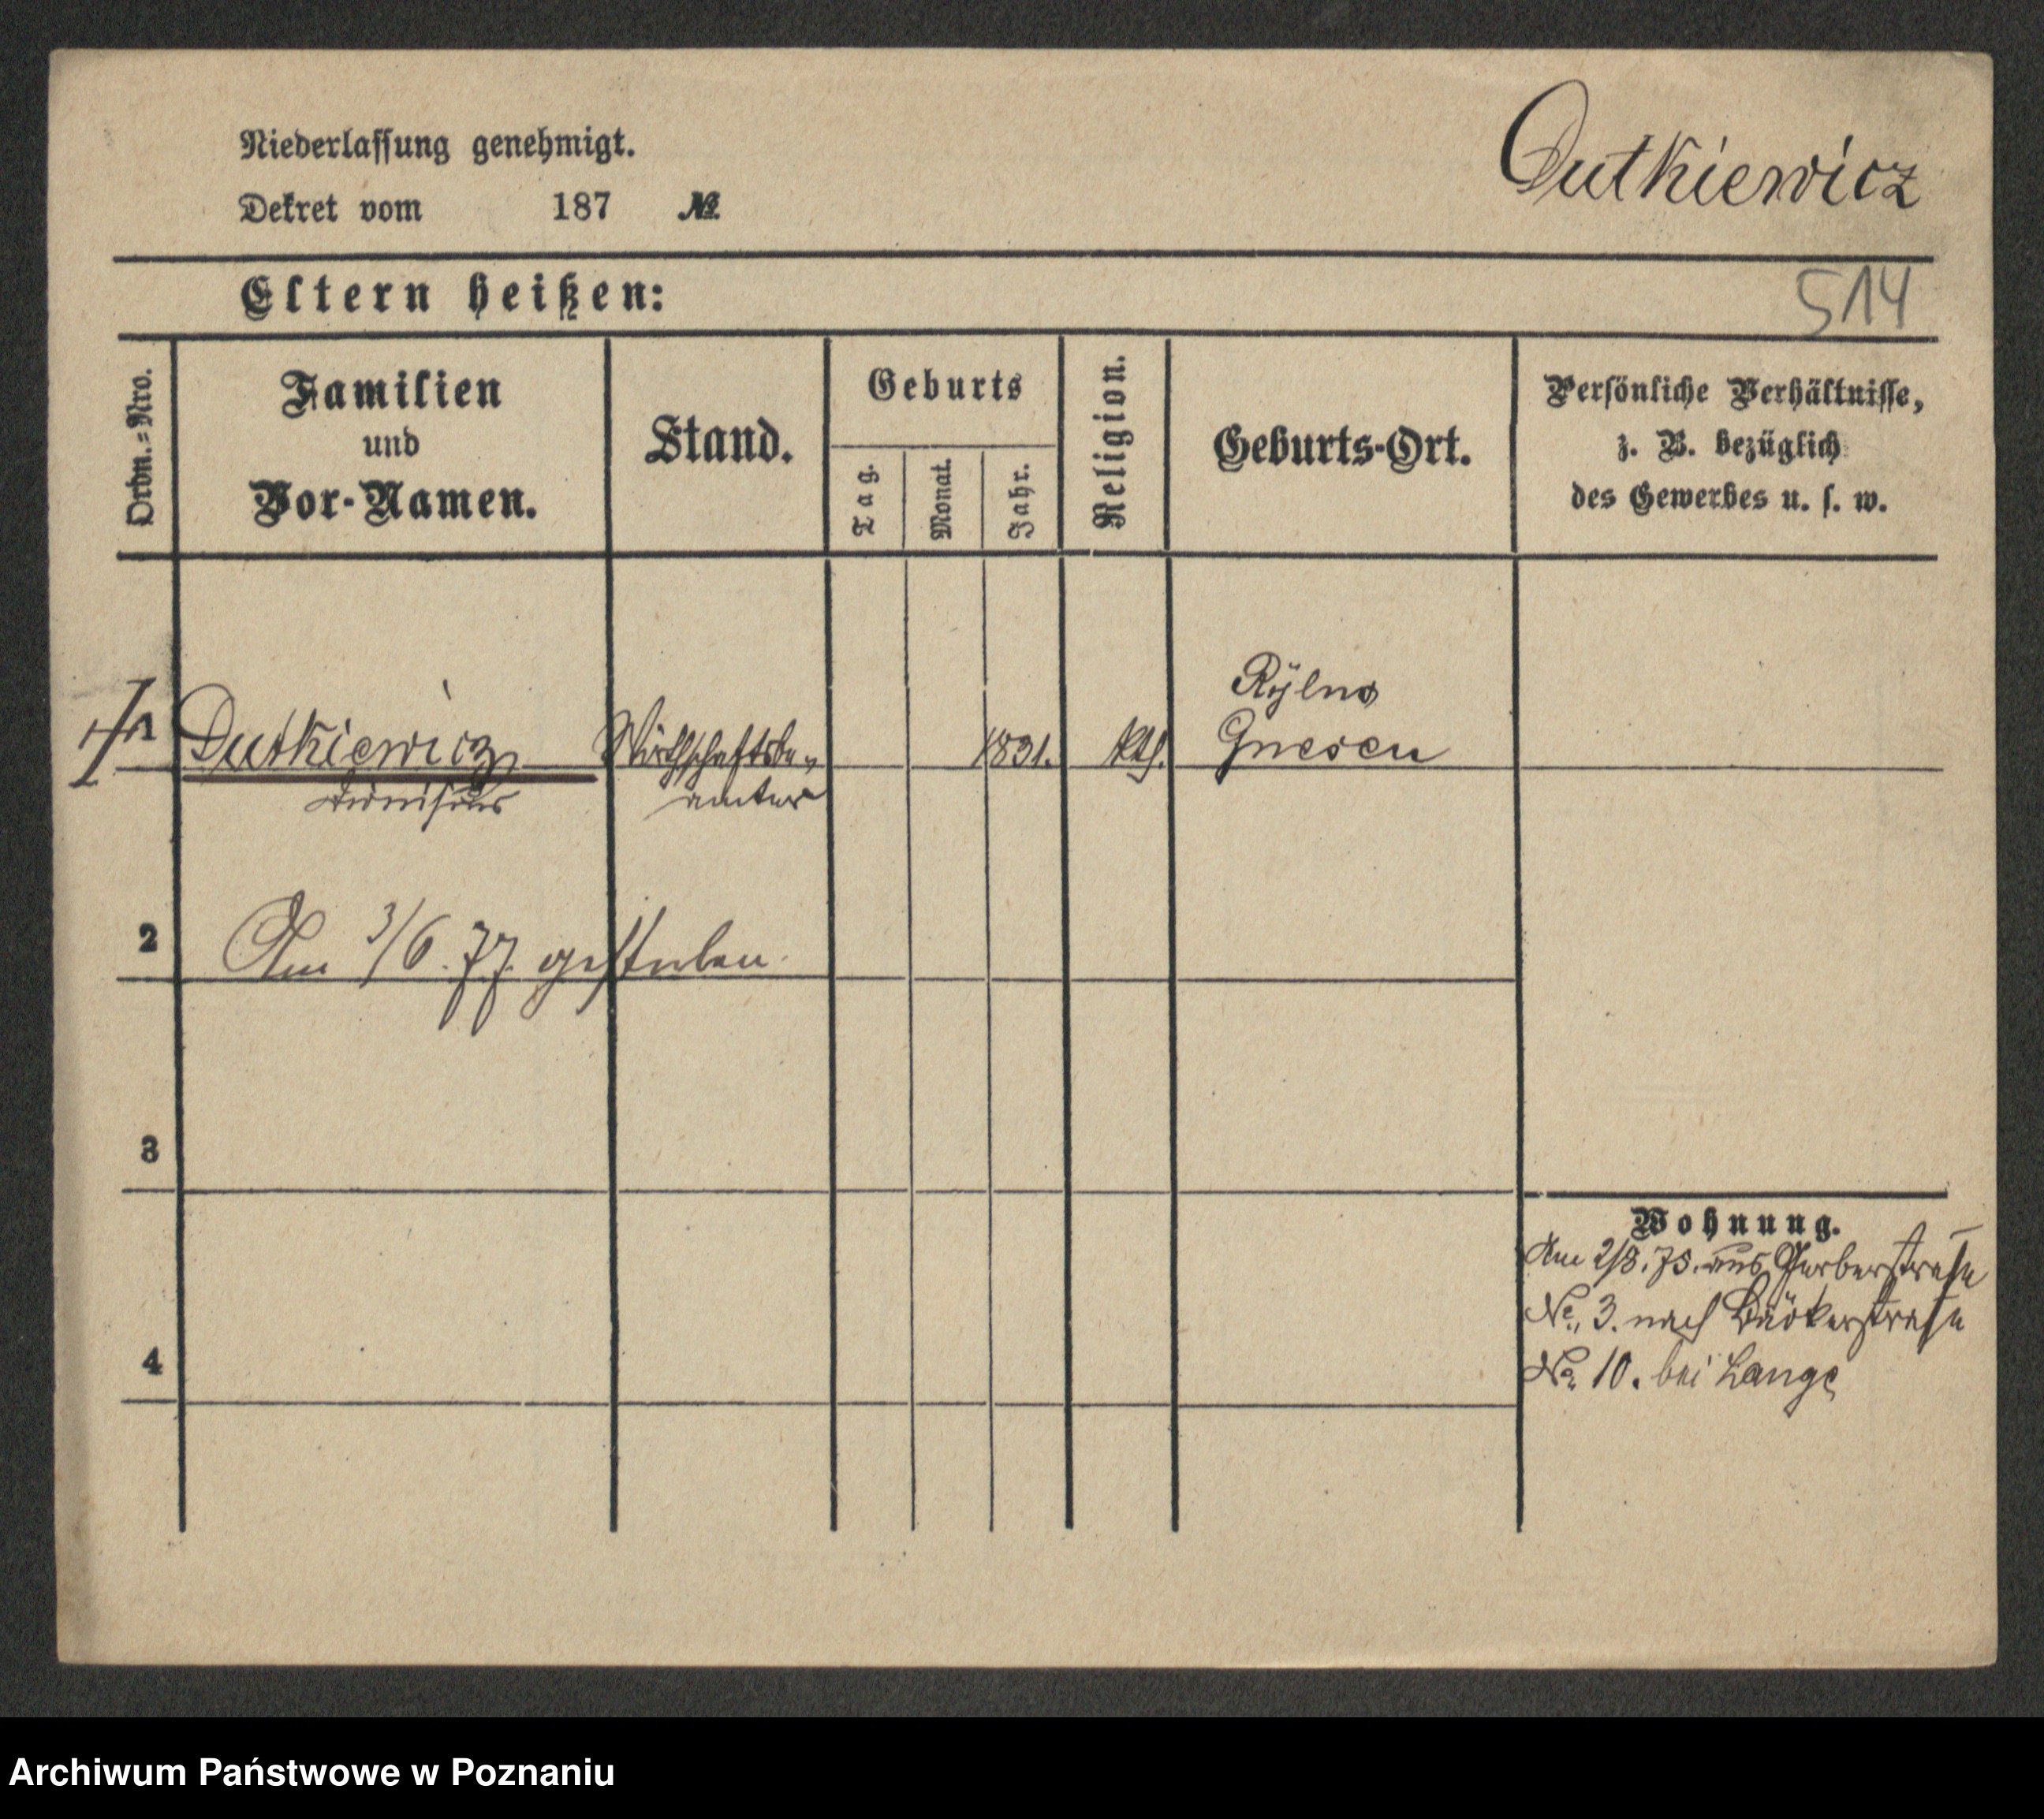 Niederlassung genehmigt.
Dekret vom 187 №
Dutkiewicz
Eltern heißen:
514
Ordn.=Nro.
Familien
und
Vor-Namen.
Stand.
Geburts
Tag.
Monat.
Jahr.
Religion.
Geburts-Ort.
Persönliche Verhältnisse,
z. B. bezüglich
des Gewerbes u. s. w.
1 Dutkiewicz Wirthschaftsbe- 1831. kth. Gnesen
amter
2 Am 3/6. 77. gestorben.
3
4
Wohnung.
Am 2/8. 75. aus Gerberstraße
No. 3. nach Bäckerstraße
No. 10. bei Lange
Archiwum Państwowe w Poznaniu